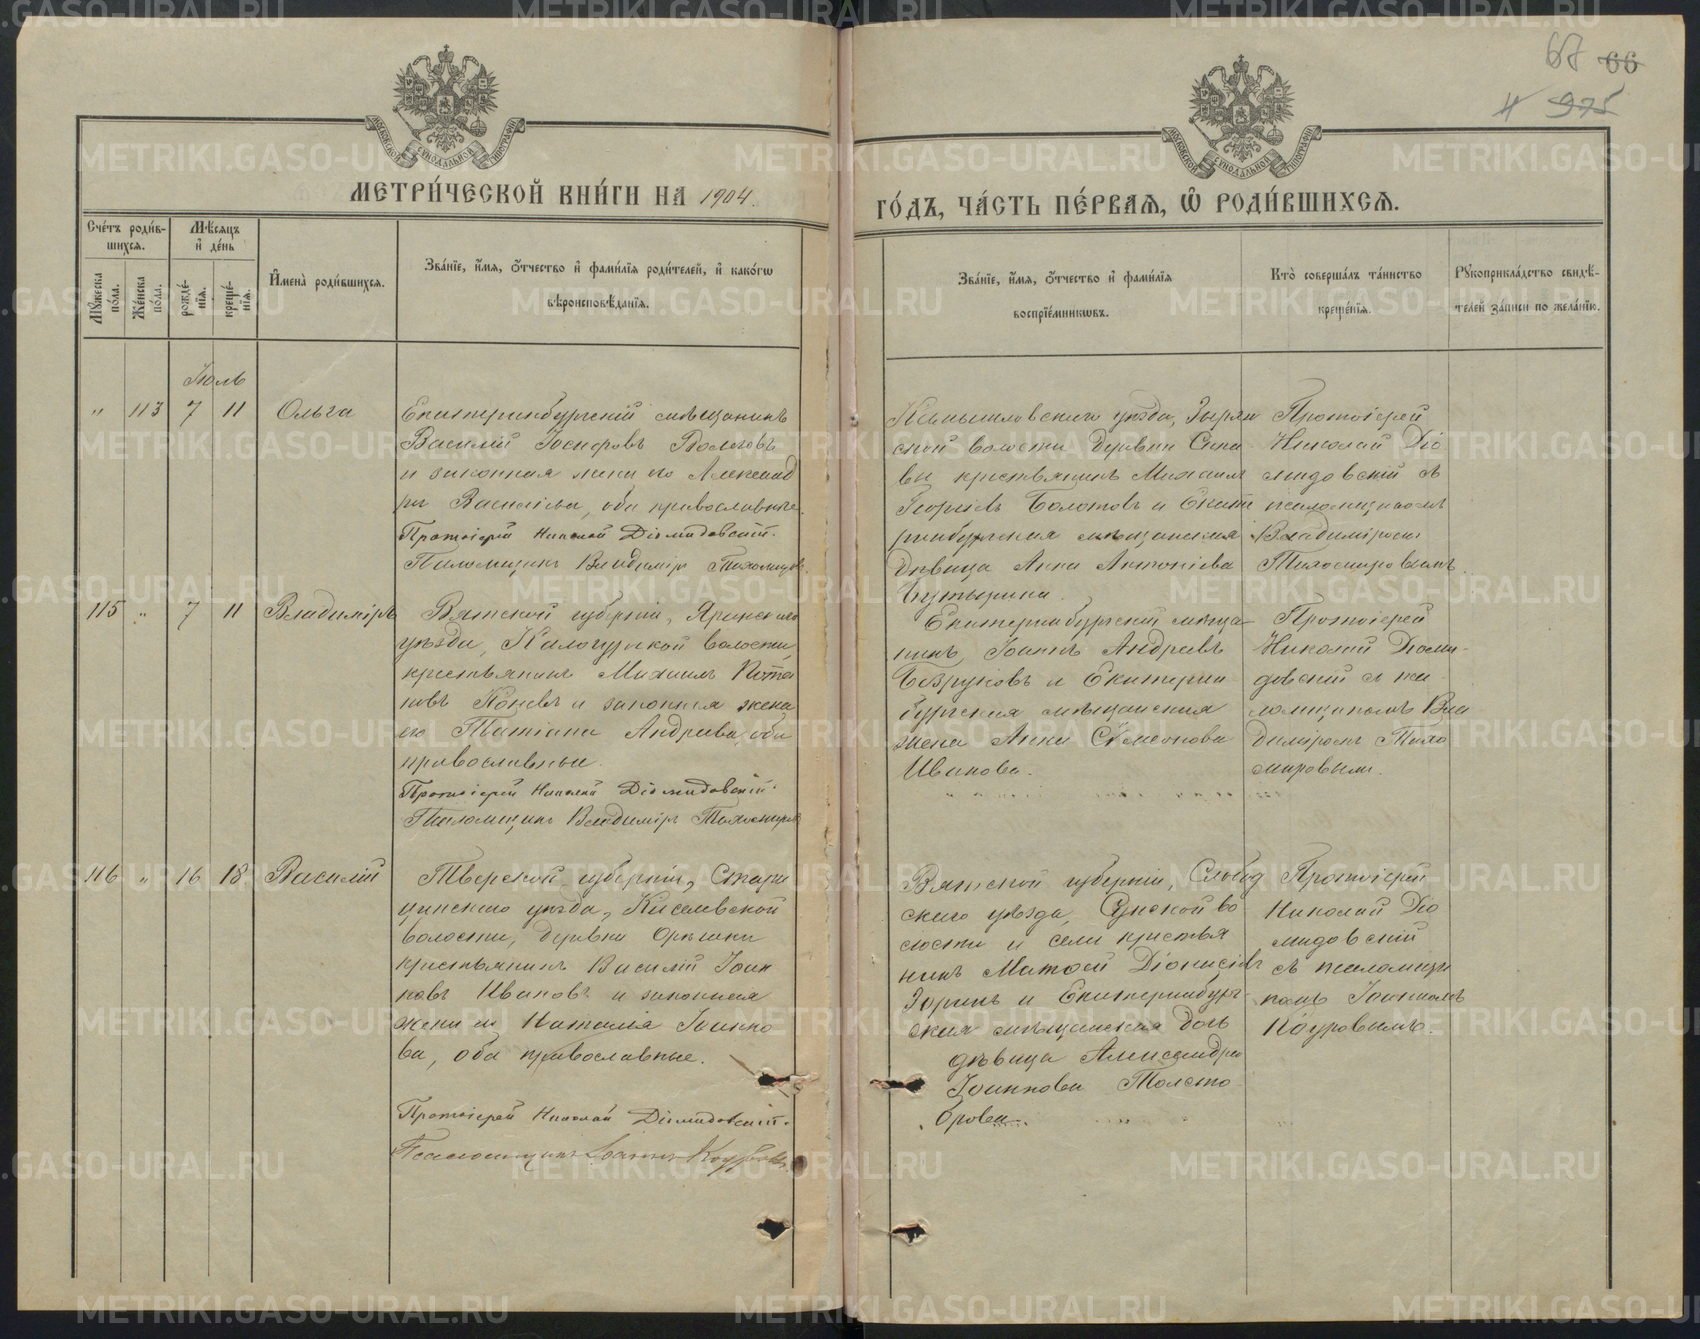 67 66
4 975
МОСКОВСКОЙ СУНОДАЛЬНОЙ ТИПОГРАФІИ
МОСКОВСКОЙ СУНОДАЛЬНОЙ ТИПОГРАФІИ
МЕТРИ́ЧЕСКОЙ КНИ́ГИ НА 1904.
ГО́ДЪ, ЧА́СТЬ ПЕ́РВАѦ, Ѿ РОДИ́ВШИХСѦ.
Сче́тъ роди́в-
шихсѧ.
Мꙋ́жеска по́ла.
Же́нска по́ла.
Мѣ́сѧцъ
и҆ де́нь
рожде́-
нїѧ.
креще́-
нїѧ.
И҆мена̀ роди́вшихсѧ.
Зва́нїе, и҆́мѧ, ѻ҆́тчество и҆ фами́лїѧ роди́телей, и҆ како́гѡ
вѣроисповѣ́данїѧ.
Зва́нїе, и҆́мѧ, ѻ҆́тчество и҆ фами́лїѧ
воспрїе́мникѡвъ.
Кто̀ соверша́лъ та́инство
креще́нїѧ.
Рꙋкоприкла́дство свидѣ́-
телей за́писи по жела́нїю.
Іюль
" 113 7 11 Ольга
Екатеринбургскій мѣщанинъ
Василій
и законная жена его Александ
ра Васильева, оба православные.
Протоіерей Николай Діомидовскій.
Псаломщикъ Владиміръ Тихомировъ.
Камышловскаго уѣзда, Зырян
ской волости деревни
вы крестьянинъ Михаилъ
Георгіевъ Болотовъ и Екате
ринбургская мѣщанская
дѣвица Анна Антоніева
Бутырина.
Протоіерей
Николай Діо
мидовскій съ
псаломщикомъ
Владиміромъ
Тихомировымъ.
115 " 7 11 Владиміръ
Вятской губерніи, Яранскаго
уѣзда, волости,
крестьянинъ Михаилъ Пота
повъ и законная жена
его Татіана Андреева, оба
православные.
Протоіерей Николай Діомидовскій.
Псаломщикъ Владиміръ Тихомировъ
Екатеринбургскій мѣща-
нинъ, Іоаннъ Андреевъ
Безруковъ и Екатерин
бургская мѣщанская
жена Анна Сѵмеонова
Иванова.
Протоіерей
Николай Діоми-
довскій съ пса
ломщикомъ Вла
диміромъ Тихо
мировымъ.
116 " 16 18 Василій
Тверской губерніи, Стари
цинскаго уѣзда, Киселевской
волости, деревни Орѣшки
крестьянинъ Василій Іоан
новъ Ивановъ и законная
жена его Наталія Іоанно
ва, оба православные.
Протоіерей Николай Діомидовскій.
Псаломщикъ Іоаннъ Кауровъ.
Вятской губерніи, Слобод
скаго уѣзда, Сунской во
лости и села крестья
нинъ Матѳей Діонисіевъ
Зоринъ и Екатеринбург-
ская мѣщанская дочь
дѣвица Александра
Іоаннова Толсто
брова.
Протоіерей
Николай Діо
мидовскій
съ псаломщи
комъ Іоанномъ
Кауровымъ.
METRIKI.GASO-URAL.RU